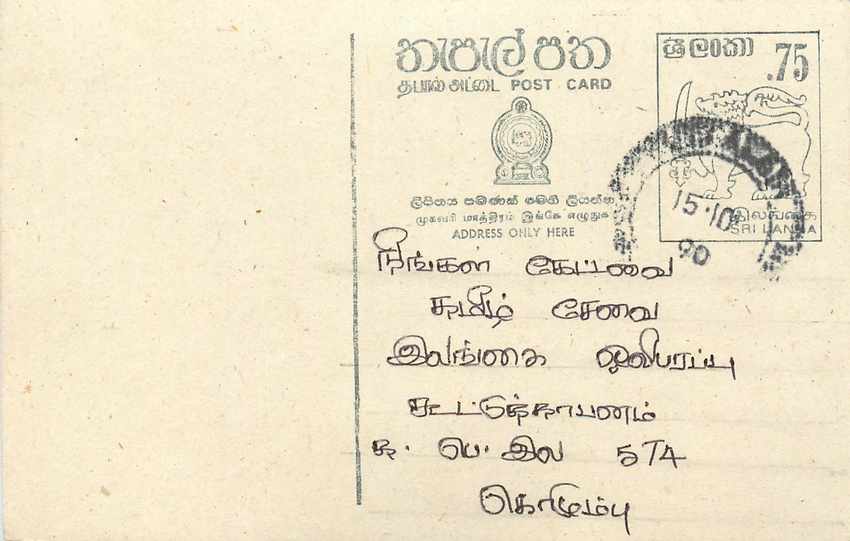 තැපැල් පත
தபால் அட்டை POST CARD
ශ්‍රී ලංකා
.75
ලිපිනය පමණක් මෙහි ලියන්න
முகவரி மாத்திரம் இங்கே எழுதுக
ADDRESS ONLY HERE
இலங்கை
SRI LANKA
15.10
90
நீங்கள் கேட்டவை
தமிழ் சேவை
இலங்கை ஒலிபரப்பு
கூட்டுத்தாபனம்
த. பெ. இல 574
கொழும்பு